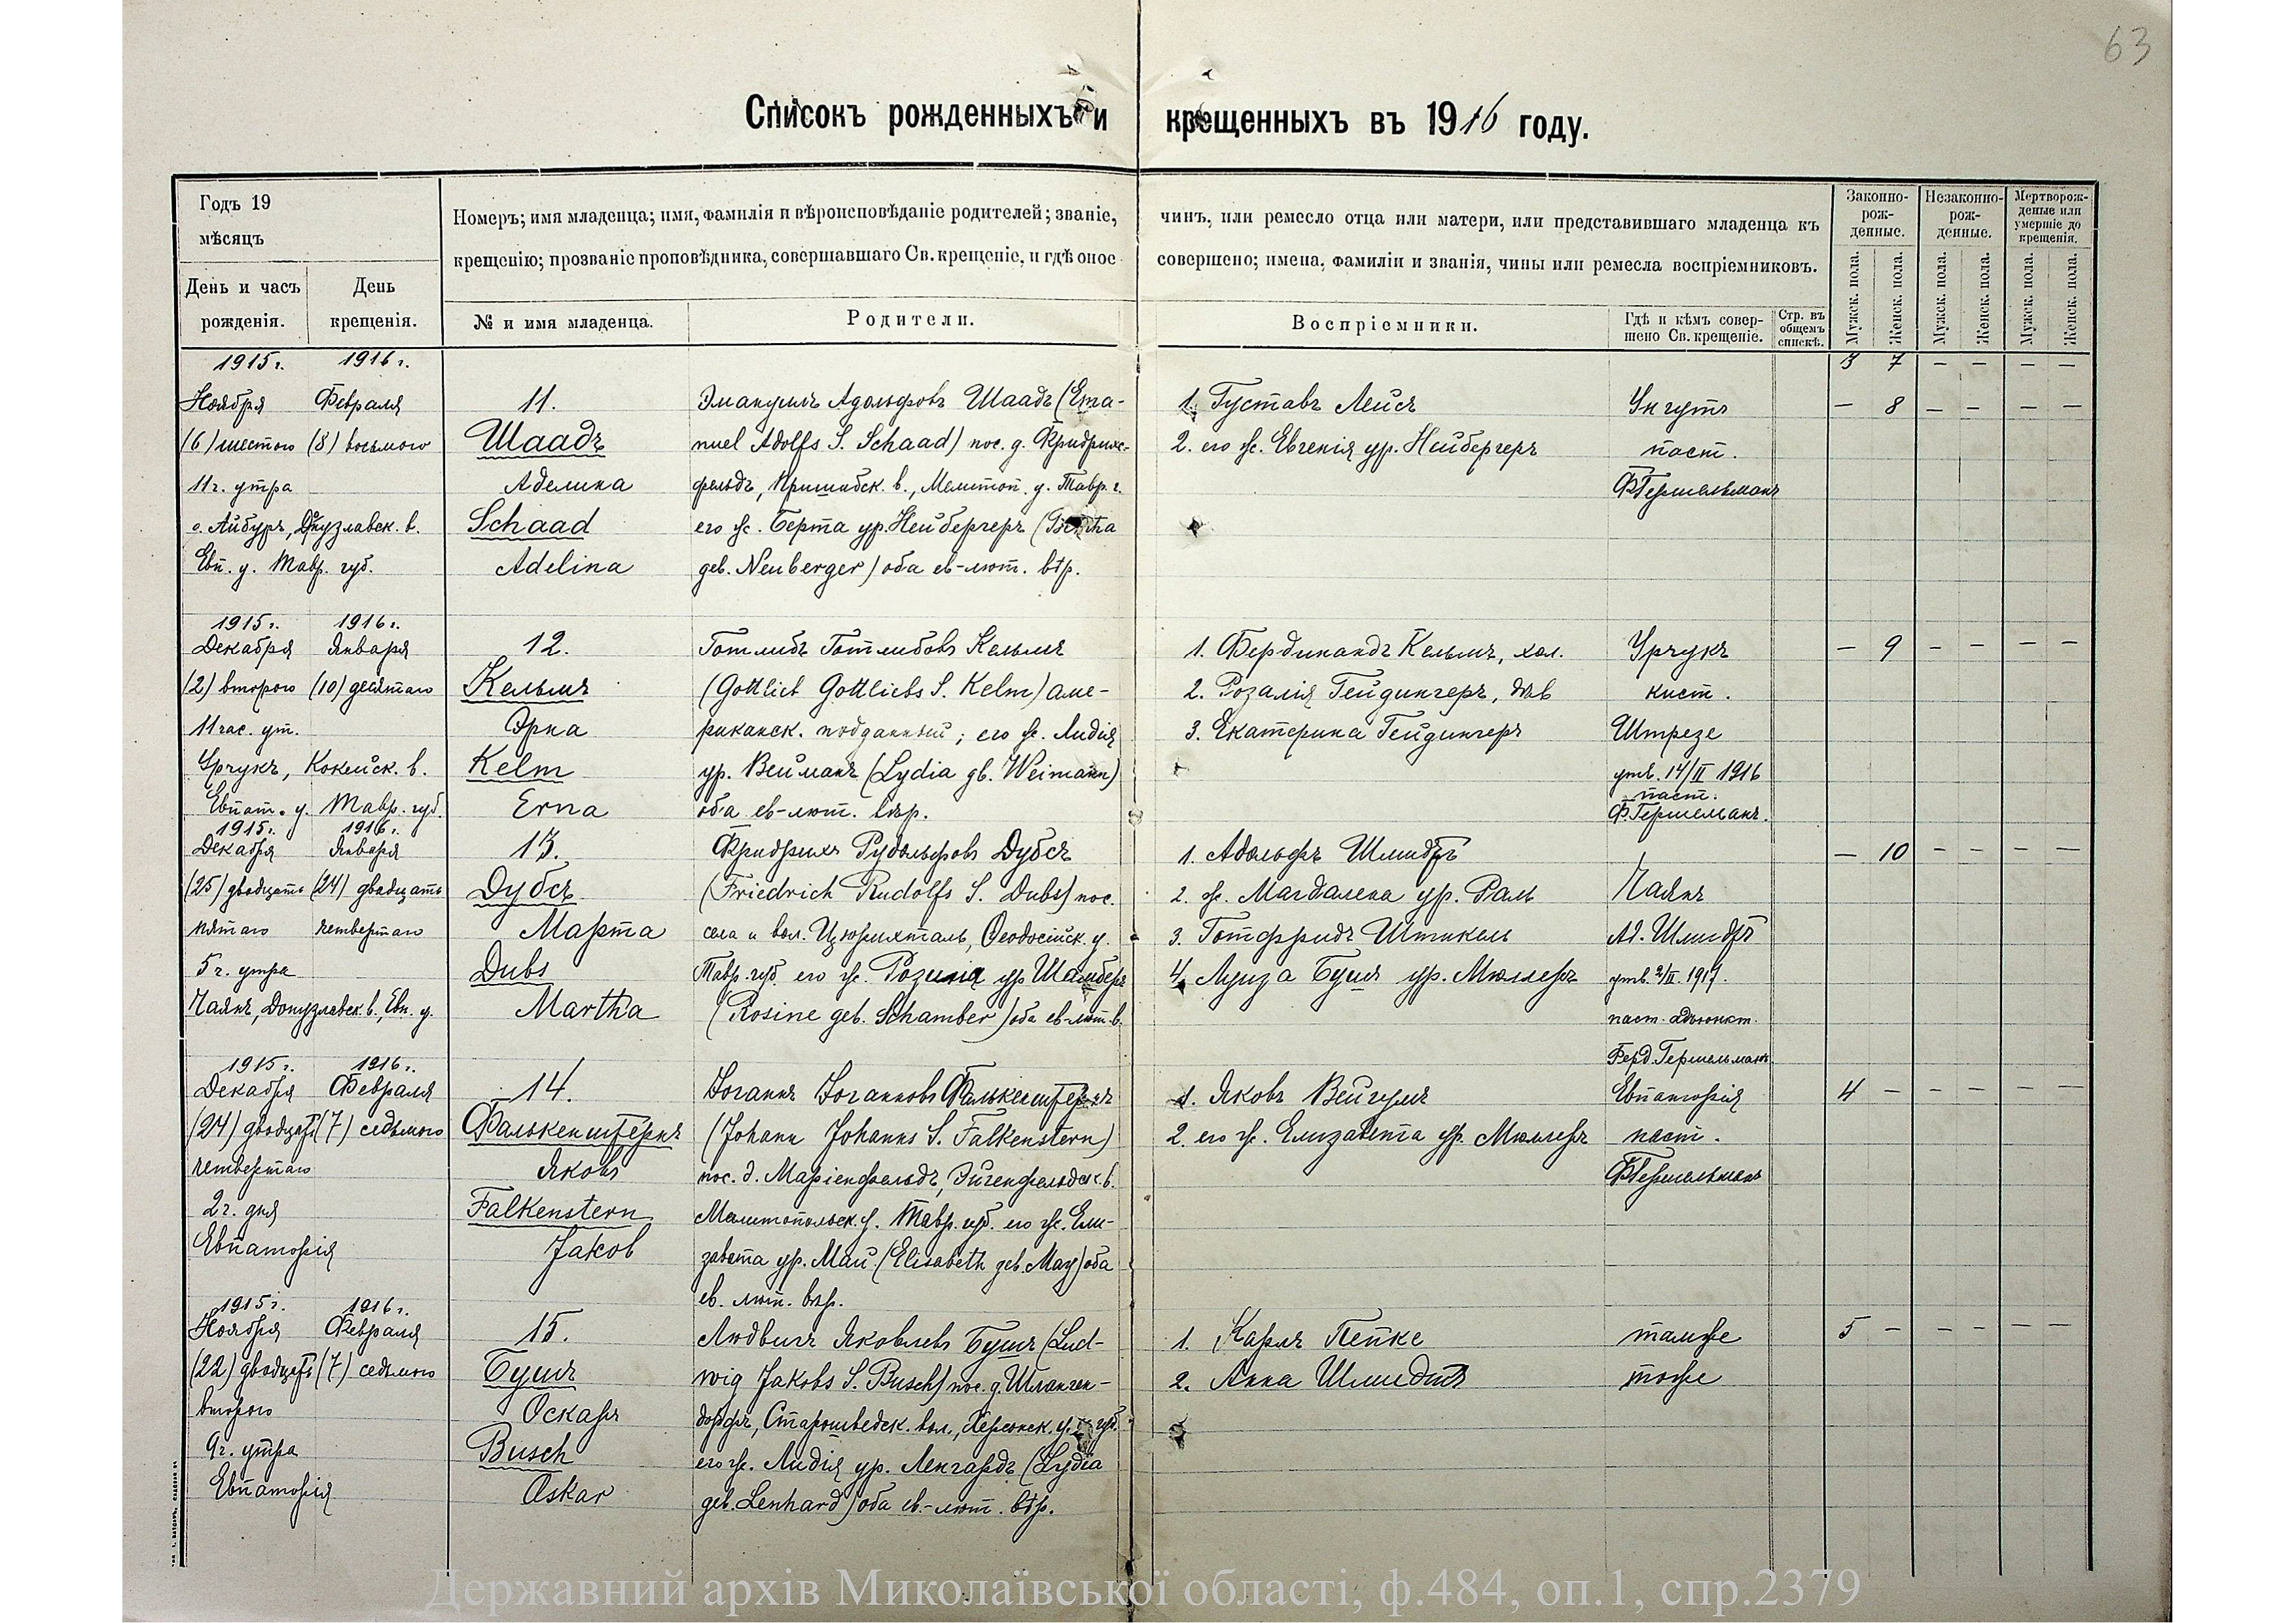 63
Списокъ рожденныхъ и крещенныхъ въ 1916 году.
Годъ 19
мѣсяцъ
День и часъ рожденія.
День крещенія.
Номеръ; имя младенца; имя, фамилія и вѣроисповѣданіе родителей; званіе, чинъ, или ремесло отца или матери, или представившаго младенца къ
крещенію; прозваніе проповѣдника, совершавшаго Св. крещеніе, и гдѣ оное совершено; имена, фамиліи и званія, чины или ремесла воспріемниковъ.
№ и имя младенца.
Родители.
Воспріемники.
Гдѣ и кѣмъ совершено Св. крещеніе.
Стр. въ общемъ спискѣ.
Законно-рожденные.
Незаконно-рожденные.
Мертворожденые или умершіе до крещенія.
Мужск. пола.
Женск. пола.
Мужск. пола.
Женск. пола.
Мужск. пола.
Женск. пола.
3 7 — — — —
1915 г.
Ноября
(6) шестого
11 ч. утра
с. Айбуръ, Донузлавск. в.
Евп. у. Тавр. губ.
1916 г.
Февраля
(8) восьмого
11.
Шаадъ
Аделина
Schaad
Adelina
Эмануилъ Адольфовъ Шаадъ (Ema-
nuel Adolfs S. Schaad) пос. д. Фридрихс-
фельдъ, Пришибск. в., Мелитоп. у. Тавр. г.
его ж. Берта ур. Нейбергеръ (Bertha
geb. Neuberger) оба ев-лют. вѣр.
1. Густавъ Лейсъ
2. его ж. Евгенія ур. Нейбергеръ
Унгутъ
паст.
Ф Гершельманъ
— 8 — — — —
1915 г.
Декабря
(2) второго
11 час. ут.
Урчукъ, Кокейск. в.
Евпат. у. Тавр. губ.
1916 г.
Января
(10) десятаго
12.
Кельмъ
Эрна
Kelm
Erna
Готлибъ Готлибовъ Кельмъ
(Gottlieb Gottliebs S. Kelm) аме-
риканск. подданный; его ж. Лидія
ур. Вейманъ (Lydia gb. Weimann)
оба ев-лют. вѣр.
1. Фердинандъ Кельмъ, хол.
2. Розалія Гейдингеръ, дѣв
3. Екатерина Гейдингеръ
Урчукъ
кист.
Штрезе
утв. 14/II 1916
паст.
Ф. Гершельманъ.
— 9 — — — —
1915 г.
Декабря
(25) двадцать
пятаго
5 ч. утра
Чаянъ, Донузлавск. в., Евп. у.
1916 г.
Января
(24) двадцать
четвертаго
13.
Дубсъ
Марта
Dubs
Martha
Фридрихъ Рудольфовъ Дубсъ
(Friedrich Rudolfs S. Dubs) пос.
села и вол. Цюрихталь, Ѳеодосійск. у.
Тавр. губ. его ж. Розина ур Шамберъ
(Rosine geb. Schamber) оба ев-лют. в.
1. Адольфъ Шмидтъ
2. ж. Магдалена ур. Раль
3. Готфридъ Штикель
4. Луиза Бушъ ур. Мюллеръ
Чаянъ
Ад. Шмидтъ
паст. адъюнкт.
Ферд. Гершельманъ.
— 10 — — — —
1915 г.
Декабря
(24) двадцать
четвертаго
2 ч. дня
Евпаторія
1916 г.
Февраля
(7) седьмого
14.
Фалькенштернъ
Яковъ
Falkenstern
Jakob
Іоганнъ Іоганновъ Фалькенштернъ
(Johann Johanns S. Falkenstern)
пос. д. Маріенфельдъ, Эйгенфельдск. в.
Мелитопольск. у. Тавр. губ. его ж. Ели-
завета ур. Май (Elisabeth geb. May) оба
ев. лют. вѣр.
1. Яковъ Вейгумъ
2. его ж. Елизавета ур. Мюллеръ
Евпаторія
паст.
Ф Гершельманъ
4 — — — — —
1915 г.
Ноября
(22) двадцать
второго
9 ч. утра
Евпаторія
1916 г.
Февраля
(7) седьмого
15.
Бушъ
Оскаръ
Busch
Oskar
Людвигъ Яковлевъ Бушъ (Lud-
wig Jakobs S. Busch) пос. д. Шланген-
дорфъ, Старошведск. вол., Херсонск. у. и губ.
его ж. Лидія ур. Ленгардъ (Lydia
geb. Lenhard) оба ев.-лют. вѣр.
1. Карлъ Пепке
2. Анна Шмидтъ
тамже
тоже
5 — — — — —
Державний архів Миколаївської області, ф.484, оп.1, спр.2379